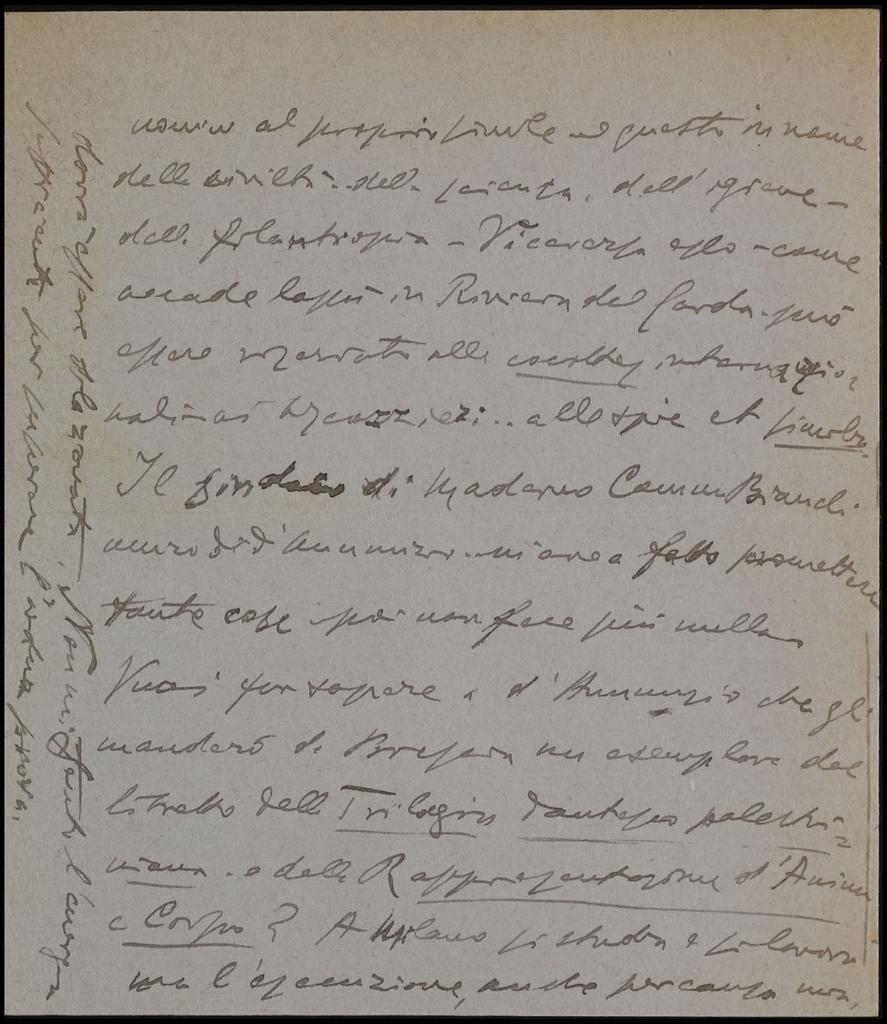 uomo al proprio simile e questo in nome
della civiltà. della scienza, dell'igiene -
della filantropia - Viceversa esso - come
accade lassù in Riviera del Garda. può
essere riservato alle cocottes, internazio-
nali .. alle spie et similia.
Il sindaco di Maderno Comm Bianchi
amico di d'Annunzio. mi aveva fatto promettere
tante cose poi non fece più nulla
Vuoi far sapere a d'Annunzio che gli
manderò da Brescia un esemplare del
libretto della Trilogia dantesca palestri-
niana. e della Rappresentazione d'Anima
e Corpo? A Milano si studia e si lavora
ma l'esecuzione, anche per causa mia,
dovrà essere dilazionata. Non mi sento l'energia
sufficiente per superare l'ardua prova.